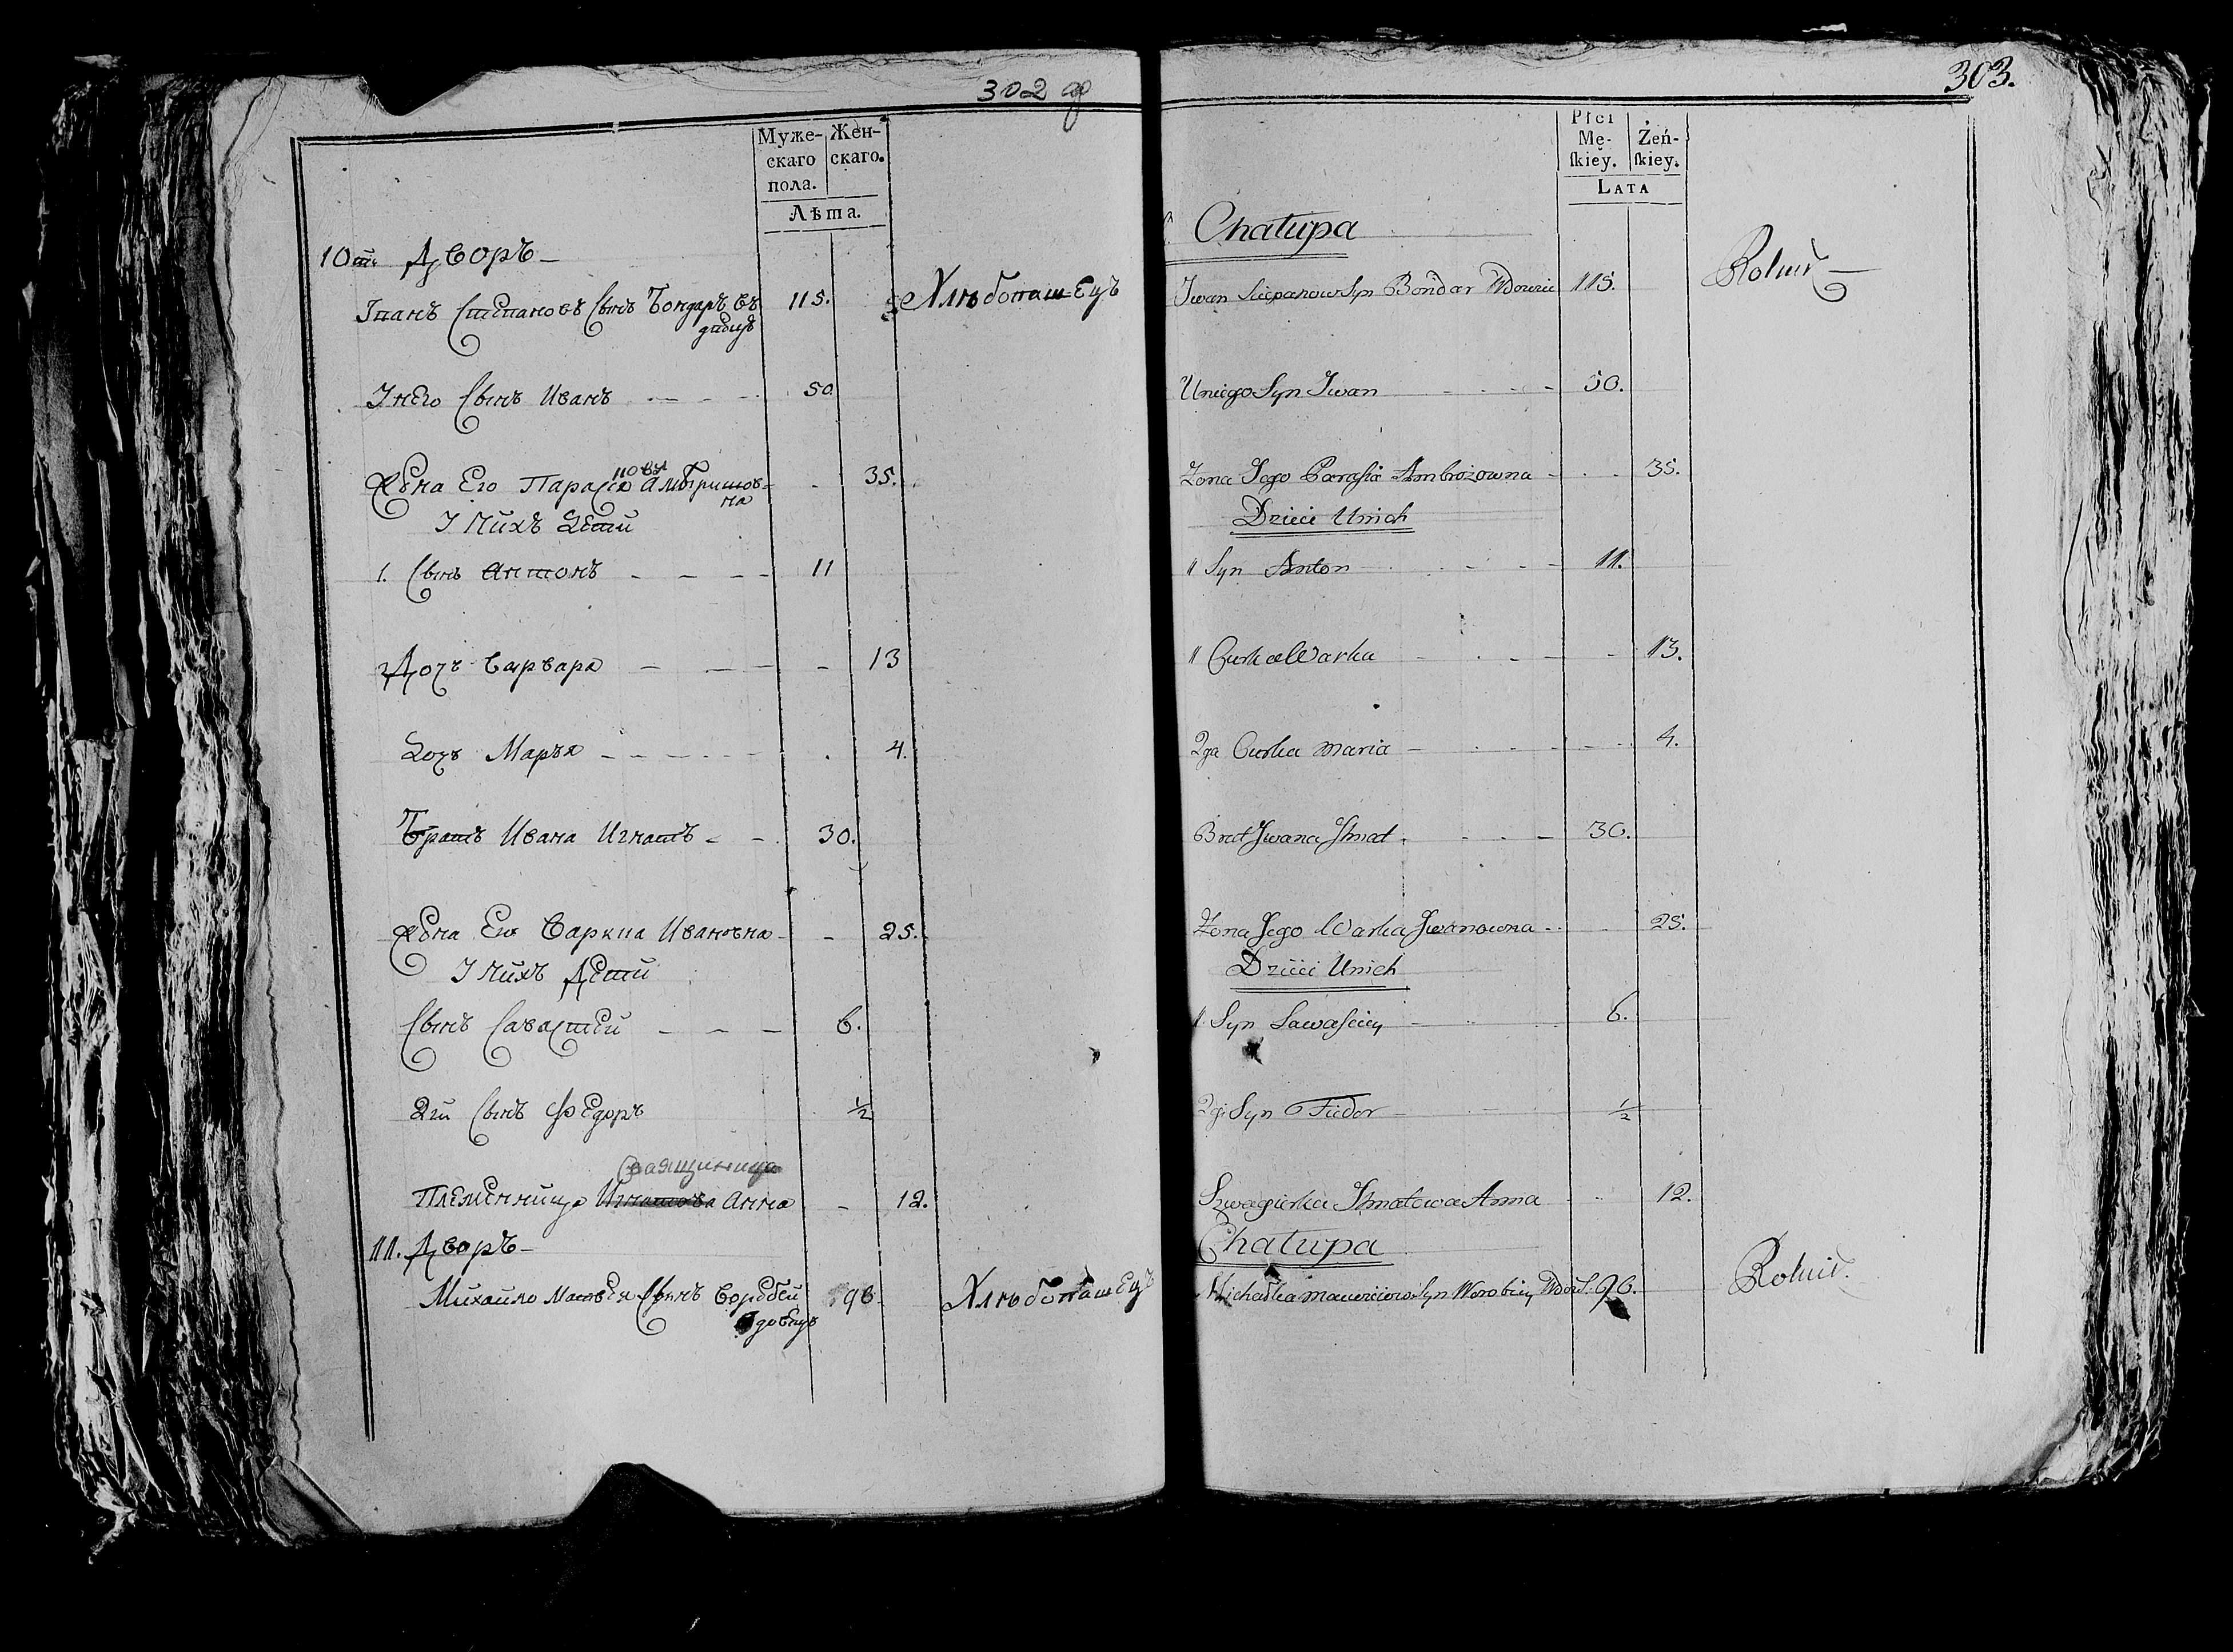 302 об
Муже-
скаго
пола.
Жен-
скаго.
Лѣта.
10й Дворъ
Іванъ Степановъ Сынъ Бондаръ въ 115. Хлѣбопашецъ
Інего Сынъ Иванъ 50
новя
Жена Его Парася Амбришов- 35.
на
І Нихъ Дети
1. Сынъ Антонъ 11
Дочъ Варвара 13
Дочъ Маръя 4.
Братъ Ивана Игнатъ 30.
Жена Его Варкиа Ивановна 25.
І Нихъ Дети
Сынъ Савастей 6.
2й Сынъ Федоръ ½
Племенница Игнатова Анна 12.
11. Дворъ
Михайло Матвея Сынъ Воробей 96 Хлѣбопашецъ
вдовецъ
303.
Płci
Mę-
ſkiey.
Żeń-
ſkiey.
LATA
Chałupa
Iwan Sciepanow Syn Bondar Wdowiec 115. Rolnik
Uniego Syn Iwan 50.
Zona Jego Parasia Ambrozowna 35.
Dzieci Unich
" Syn Anton 11.
" Curka Warka 13.
2ga Curka Maria 4.
Brat Iwana Ihnat 30.
Zona Jego Warka Iwanowna 25.
Dzieci Unich
" Syn Sawasciey 6.
2gi Syn Fiedor ½
Szwagierka Ihnatowa Anna 12.
Chałupa
Michałka Macieiow Syn Worobiey Wdow. 96. Rolnik.